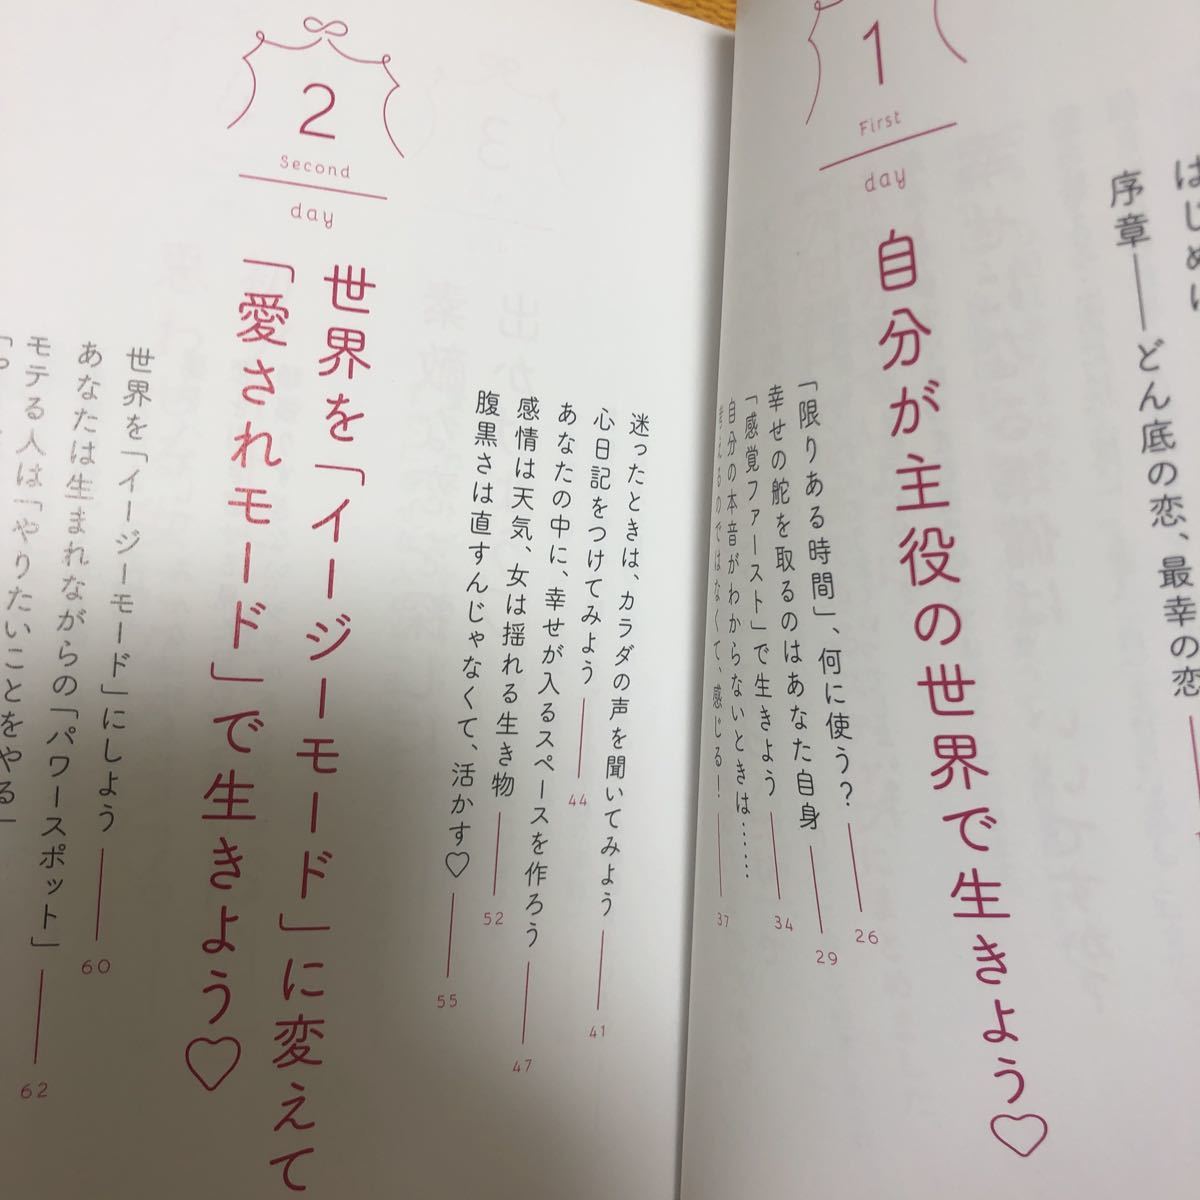 はじめに
序章――どん底の恋、最幸の恋
1
First
day
自分が主役の世界で生きよう♡
「限りある時間」、何に使う? 26
幸せの舵を取るのはあなた自身 29
「感覚ファースト」で生きよう 34
自分の本音がわからないときは……
考えるのではなくて、感じる! 37
迷ったときは、カラダの声を聞いてみよう 41
心日記をつけてみよう 44
あなたの中に、幸せが入るスペースを作ろう 47
感情は天気、女は揺れる生き物 52
腹黒さは直すんじゃなくて、活かす♡ 55
2
Second
day
世界を「イージーモード」に変えて
「愛されモード」で生きよう♡
世界を「イージーモード」にしよう 60
あなたは生まれながらの「パワースポット」 62
モテる人は「やりたいことをやる」